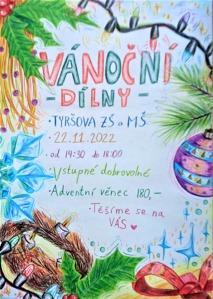 VÁNOČNÍ
- DÍLNY -
• TYRŠOVA ZŠ a MŠ
• 22.11.2022
• od 14:30 do 18:00
• Vstupné dobrovolné
• Adventní věnec 180,-
Těšíme se na
VÁS ♥